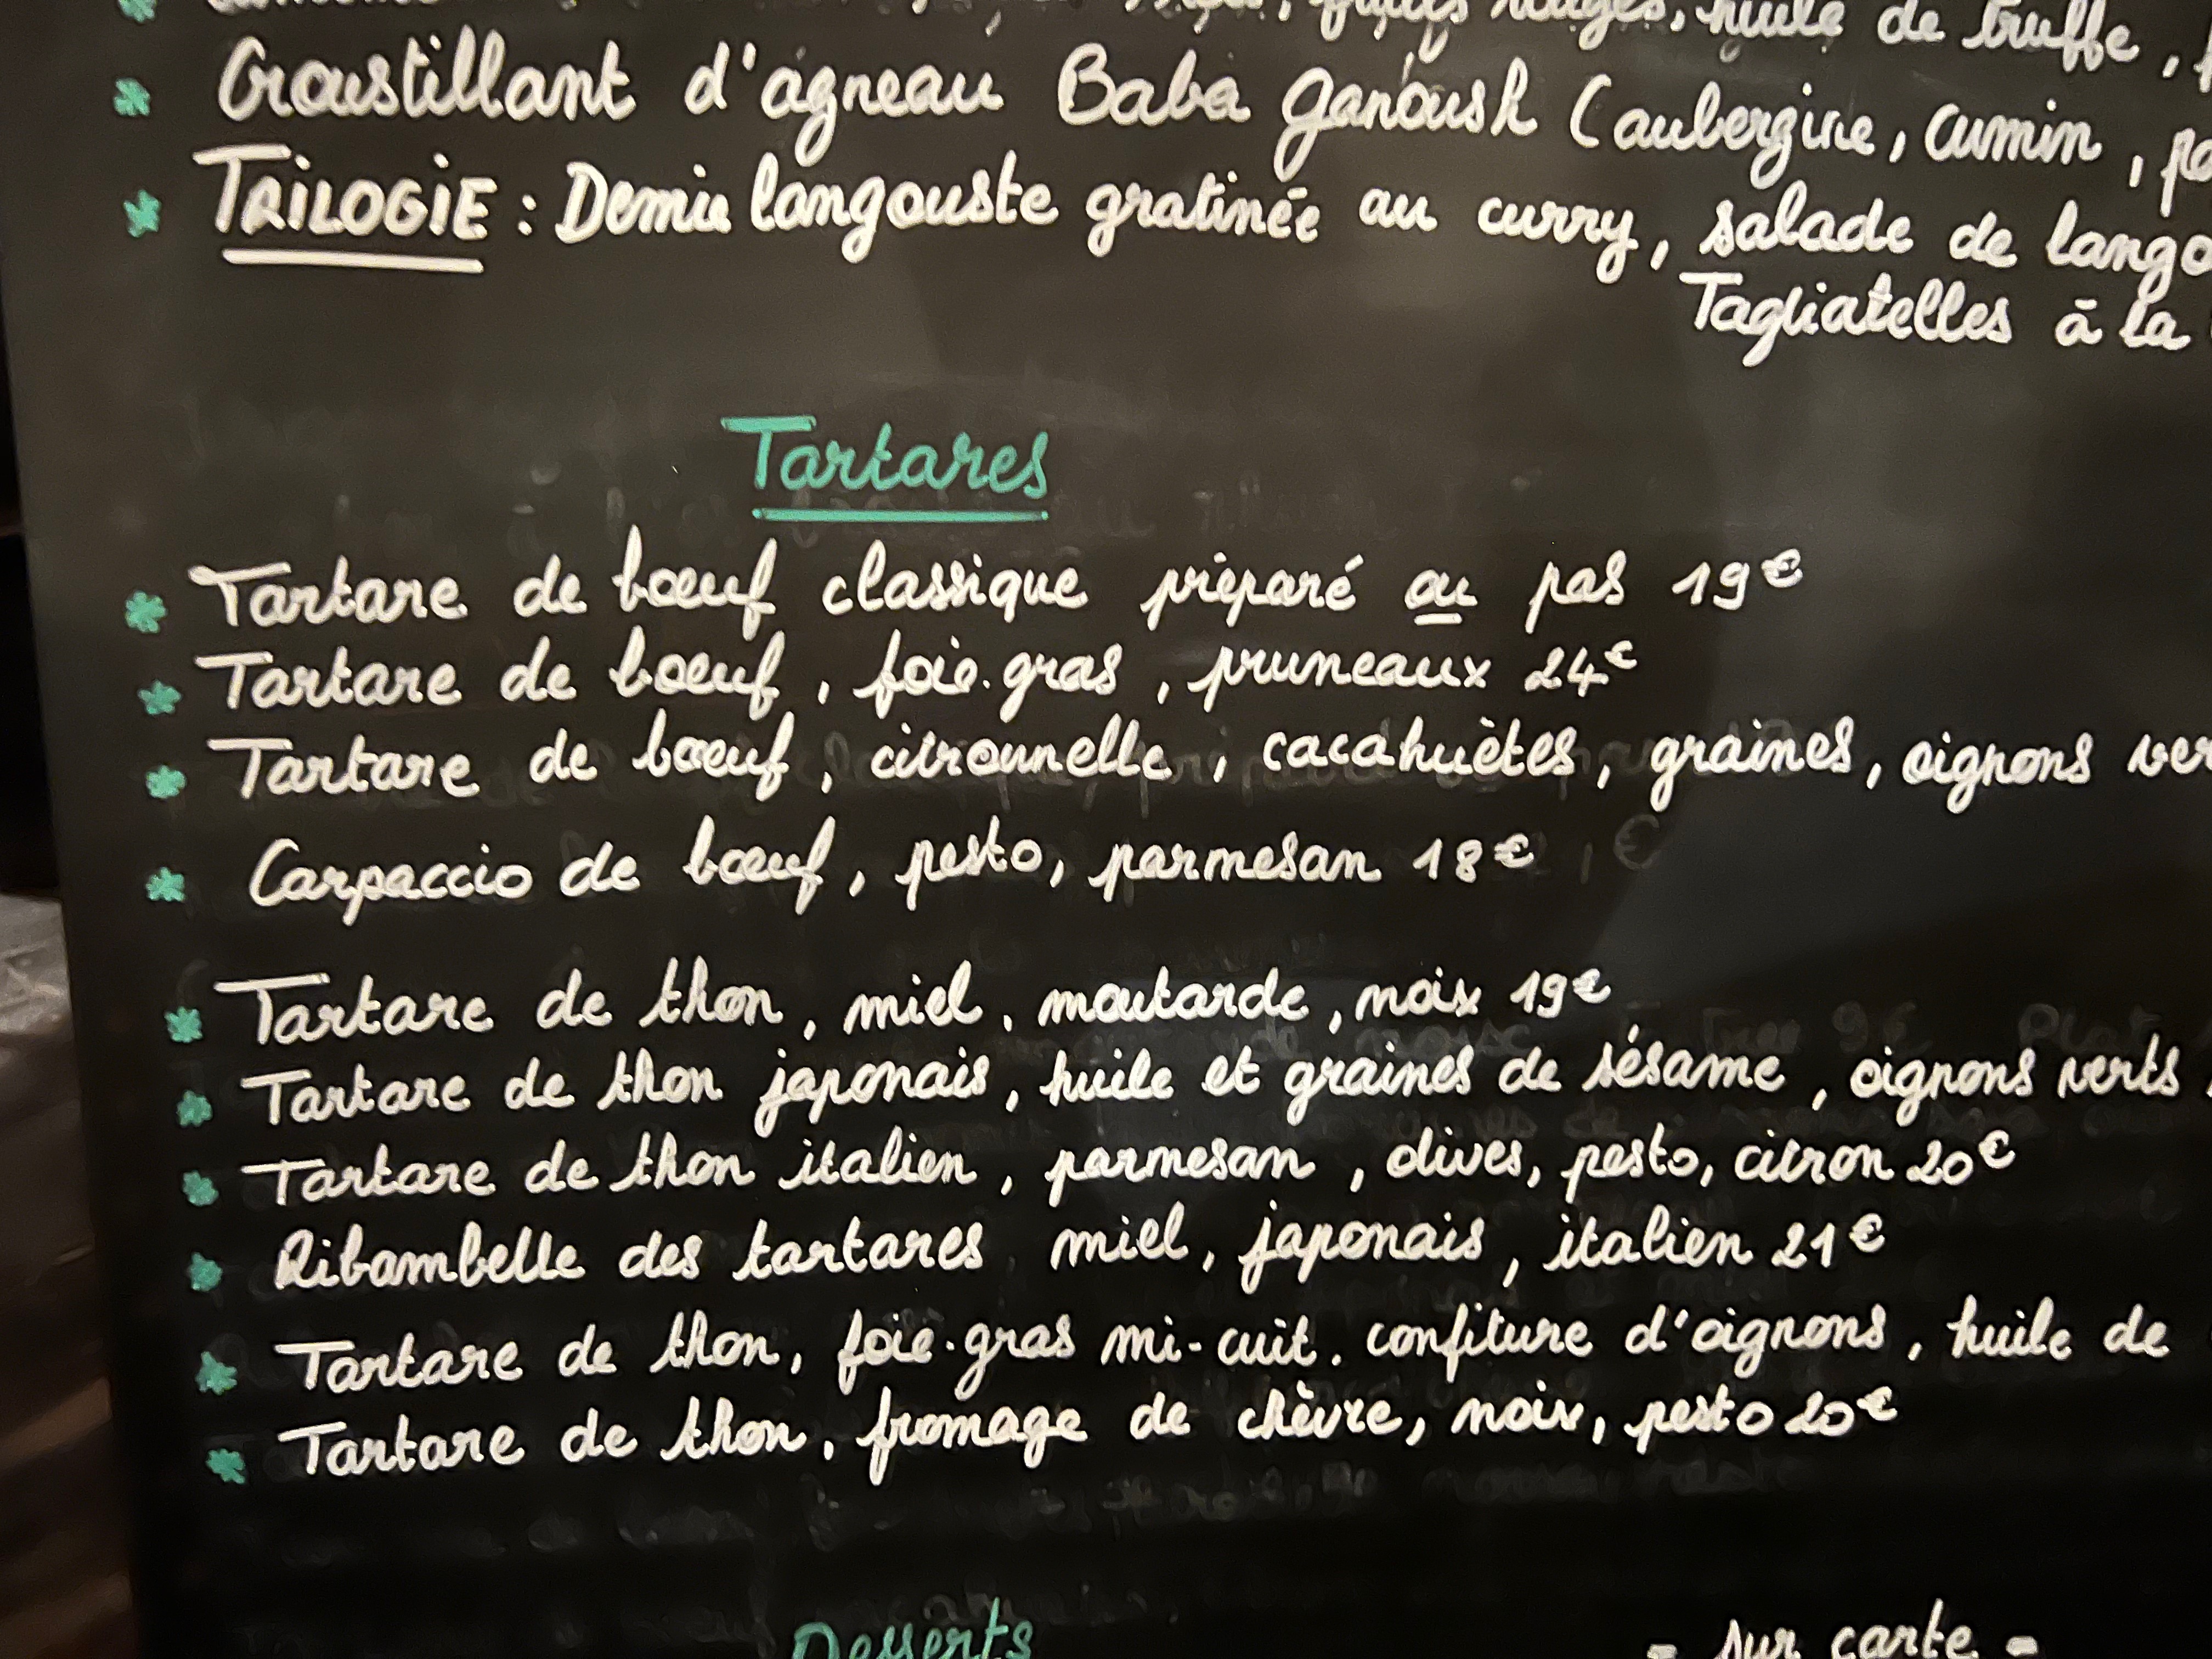 fruits rouges, huile de truffe,
Croustillant d'agneau Baba ganoush (aubergine, cumin,
TRILOGIE : Demie langouste gratinée au curry, salade de lango
Tagliatelles à la
Tartares
Tartare de bœuf classique préparé ou pas 19€
Tartare de bœuf, foie-gras, pruneaux 24€
Tartare de bœuf, citronnelle, cacahuètes, graines, oignons ver
Carpaccio de bœuf, pesto, parmesan 18€
Tartare de thon, miel, moutarde, noix 19€
Tartare de thon japonais, huile et graines de sésame, oignons verts
Tartare de thon italien, parmesan, olives, pesto, citron 20€
Ribambelle des tartares miel, japonais, italien 21€
Tartare de thon, foie-gras mi-cuit, confiture d'oignons, huile de
Tartare de thon, fromage de chèvre, noix, pesto 20€
Desserts - sur carte -